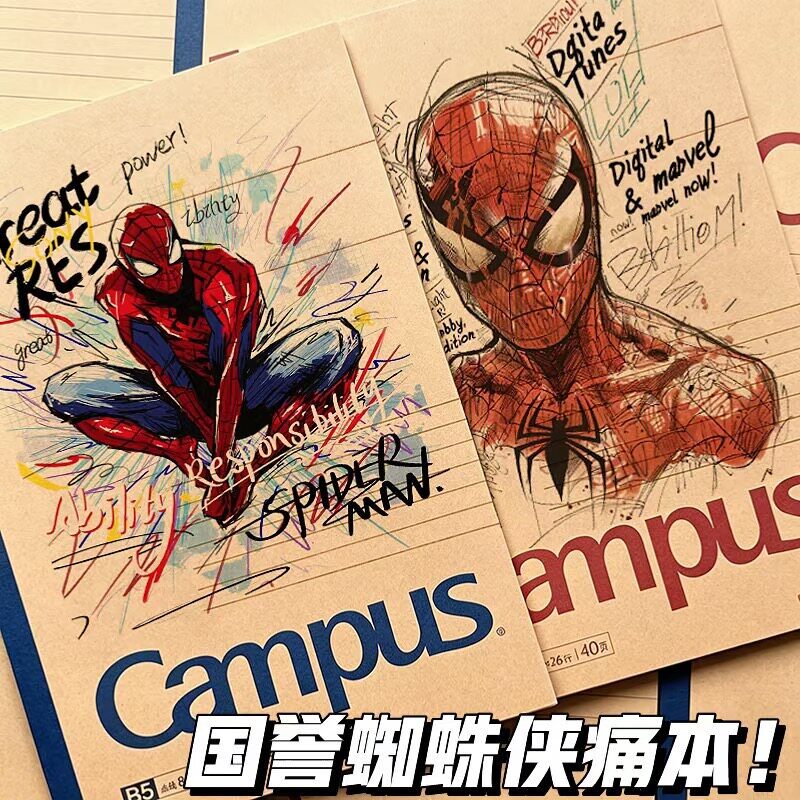 power!
reat
RES
ibility
great
Ability
Responsibility
SPIDER
MAN.
Campus®
B5
Dgita
Tunes
Digital
& masvel
now! masvel now!
obby.
dition.
ampus
26行 | 40页
国誉蜘蛛侠痛本!